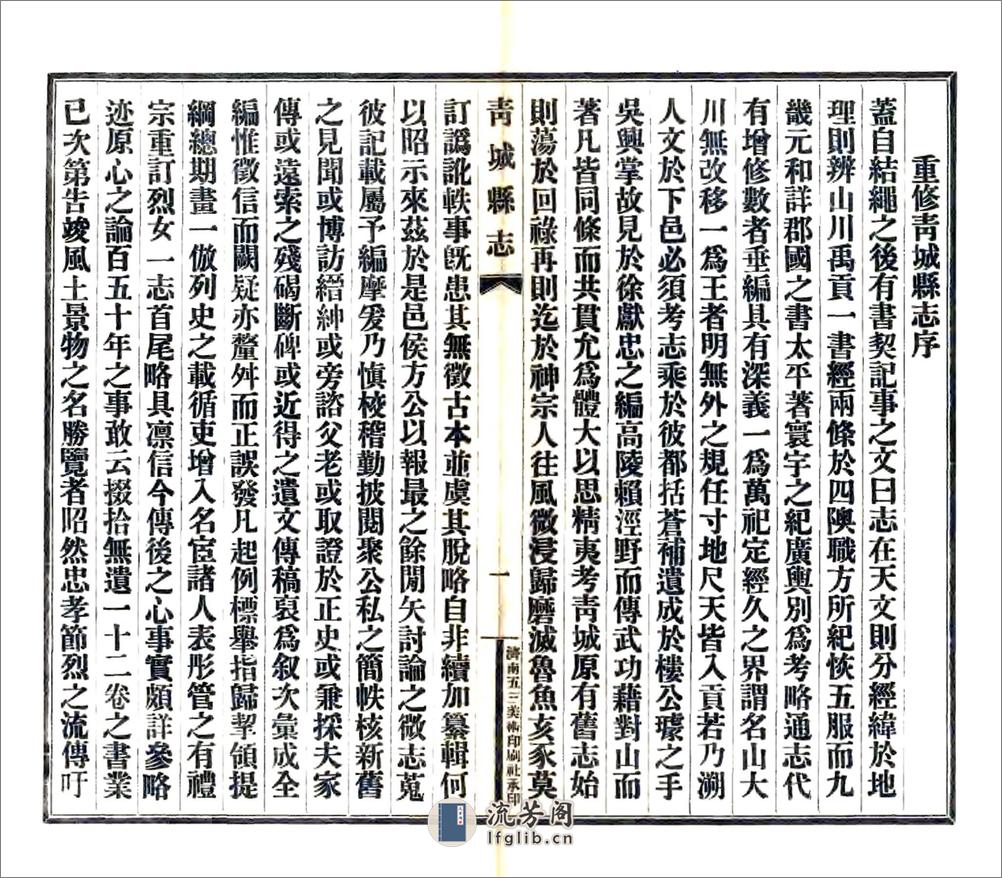 重修靑城縣志序
蓋自結繩之後有書契記事之文曰志在天文則分經緯於地
理則辨山川禹貢一書經兩條於四隩職方所紀恢五服而九
畿元和詳郡國之書太平著寰宇之紀廣輿別爲考略通志代
有增修數者垂編具有深義一爲萬祀定經久之界謂名山大
川無改移一爲王者明無外之規任寸地尺天皆入貢若乃溯
人文於下邑必須考志乘於彼都括蒼補遺成於樓公璩之手
吳興掌故見於徐獻忠之編高陵賴涇野而傳武功藉對山而
著凡皆同條而共貫尤爲體大以思精夷考靑城原有舊志始
則蕩於回祿再則迄於神宗人往風微浸歸磨滅魯魚亥豕莫
靑城縣志
一
濟南五三美術印刷社承印
訂譌訛軼事旣患其無徵古本並虞其脫略自非續加纂輯何
以昭示來茲於是邑侯方公以報最之餘閒矢討論之微志蒐
彼記載屬予編摩爰乃愼校稽勤披閱聚公私之簡帙核新舊
之見聞或博訪縉紳或旁諮父老或取證於正史或兼採夫家
傳或遠索之殘碣斷碑或近得之遺文傳稿裒爲叙次彙成全
編惟徵信而闕疑亦釐舛而正誤發凡起例標舉指歸挈領提
綱總期畫一倣列史之載循吏增入名宦諸人表彤管之有禮
宗重訂烈女一志首尾略具凛信今傳後之心事實頗詳參略
迹原心之論百五十年之事敢云掇拾無遺一十二卷之書業
已次第告竣風土景物之名勝覽者昭然忠孝節烈之流傳吁
流芳阁
lfglib.cn